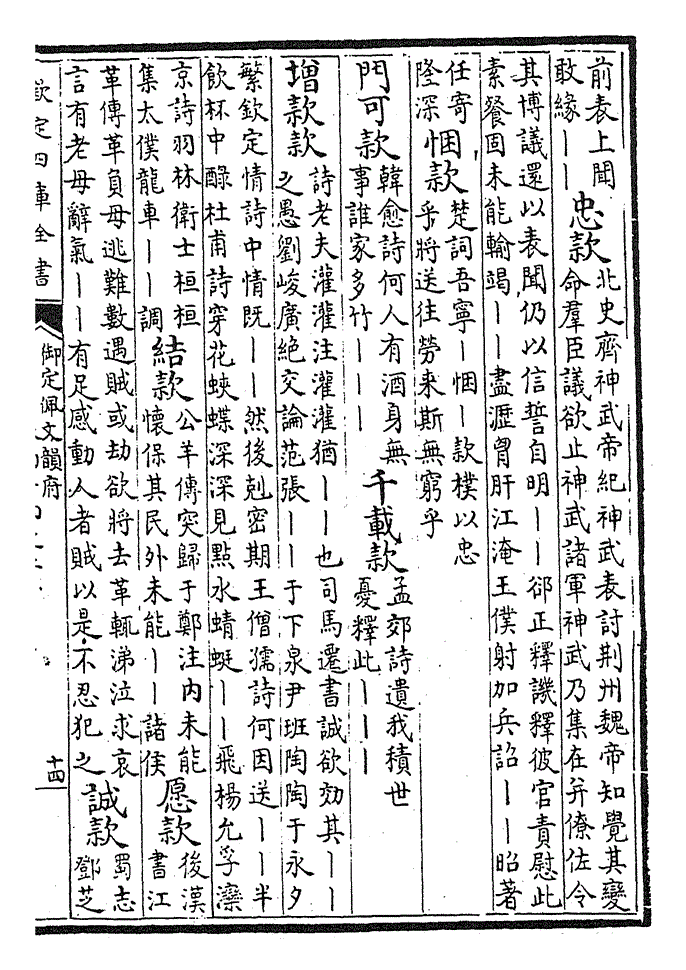 前表上聞
敢縁丨丨
忠款
北史齊神武帝紀神武表討荆州魏帝知覺其變
命羣臣議欲止神武諸軍神武乃集在并僚佐令
其博議還以表聞仍以信誓自明丨丨郤正釋譏釋彼官責慰此
素餐固未能輸竭丨丨盡瀝胷肝江淹王僕射加兵詔丨丨昭著
任寄
隆深
悃款
楚詞吾寧丨悃丨款樸以忠
乎將送往勞来斯無窮乎
門可款
韓愈詩何人有酒身無
事誰家多竹丨丨丨
千載款
孟郊詩遺我積世
憂釋此丨丨丨
增款款
詩老夫灌灌注灌灌猶丨丨也司馬遷書誠欲効其丨丨
之愚劉峻廣絶交論范張丨丨于下泉尹班陶陶于永夕
繁欽定情詩中情既丨丨然後剋密期王僧孺詩何因送丨丨半
飲杯中醁杜甫詩穿花蛺蝶深深見點水蜻蜓丨丨飛楊允孚灤
京詩羽林衛士桓桓
集太僕龍車丨丨調
結款
公羊傳突歸于鄭注内未能
懐保其民外未能丨丨諸侯
愿款
後漢
書江
革傳革負母逃難數遇賊或劫欲將去革輒涕泣求哀
言有老母辭氣丨丨有足感動人者賊以是不忍犯之
誠款
蜀志
鄧芝
欽定四庫全書
御定佩文韻府
十四